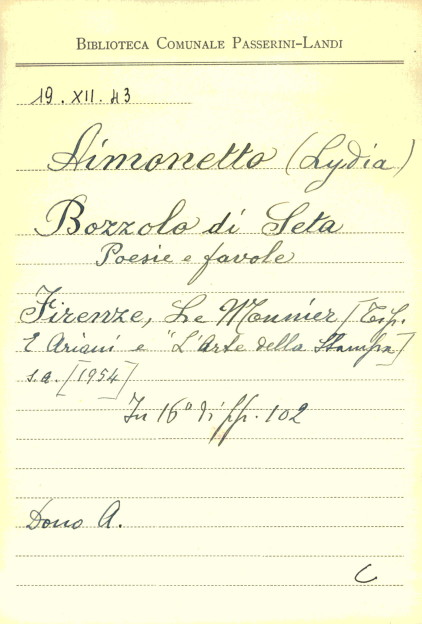 BIBLIOTECA COMUNALE PASSERINI-LANDI
19. XII. 43
Simonetto (Lydia)
Bozzolo di Seta
Poesie e favole
Firenze, Le Monnier [Tip.
E Ariani e "L'Arte della Stampa]
s.a. [1954]
In 16° di pp. 102
Dono A.
C